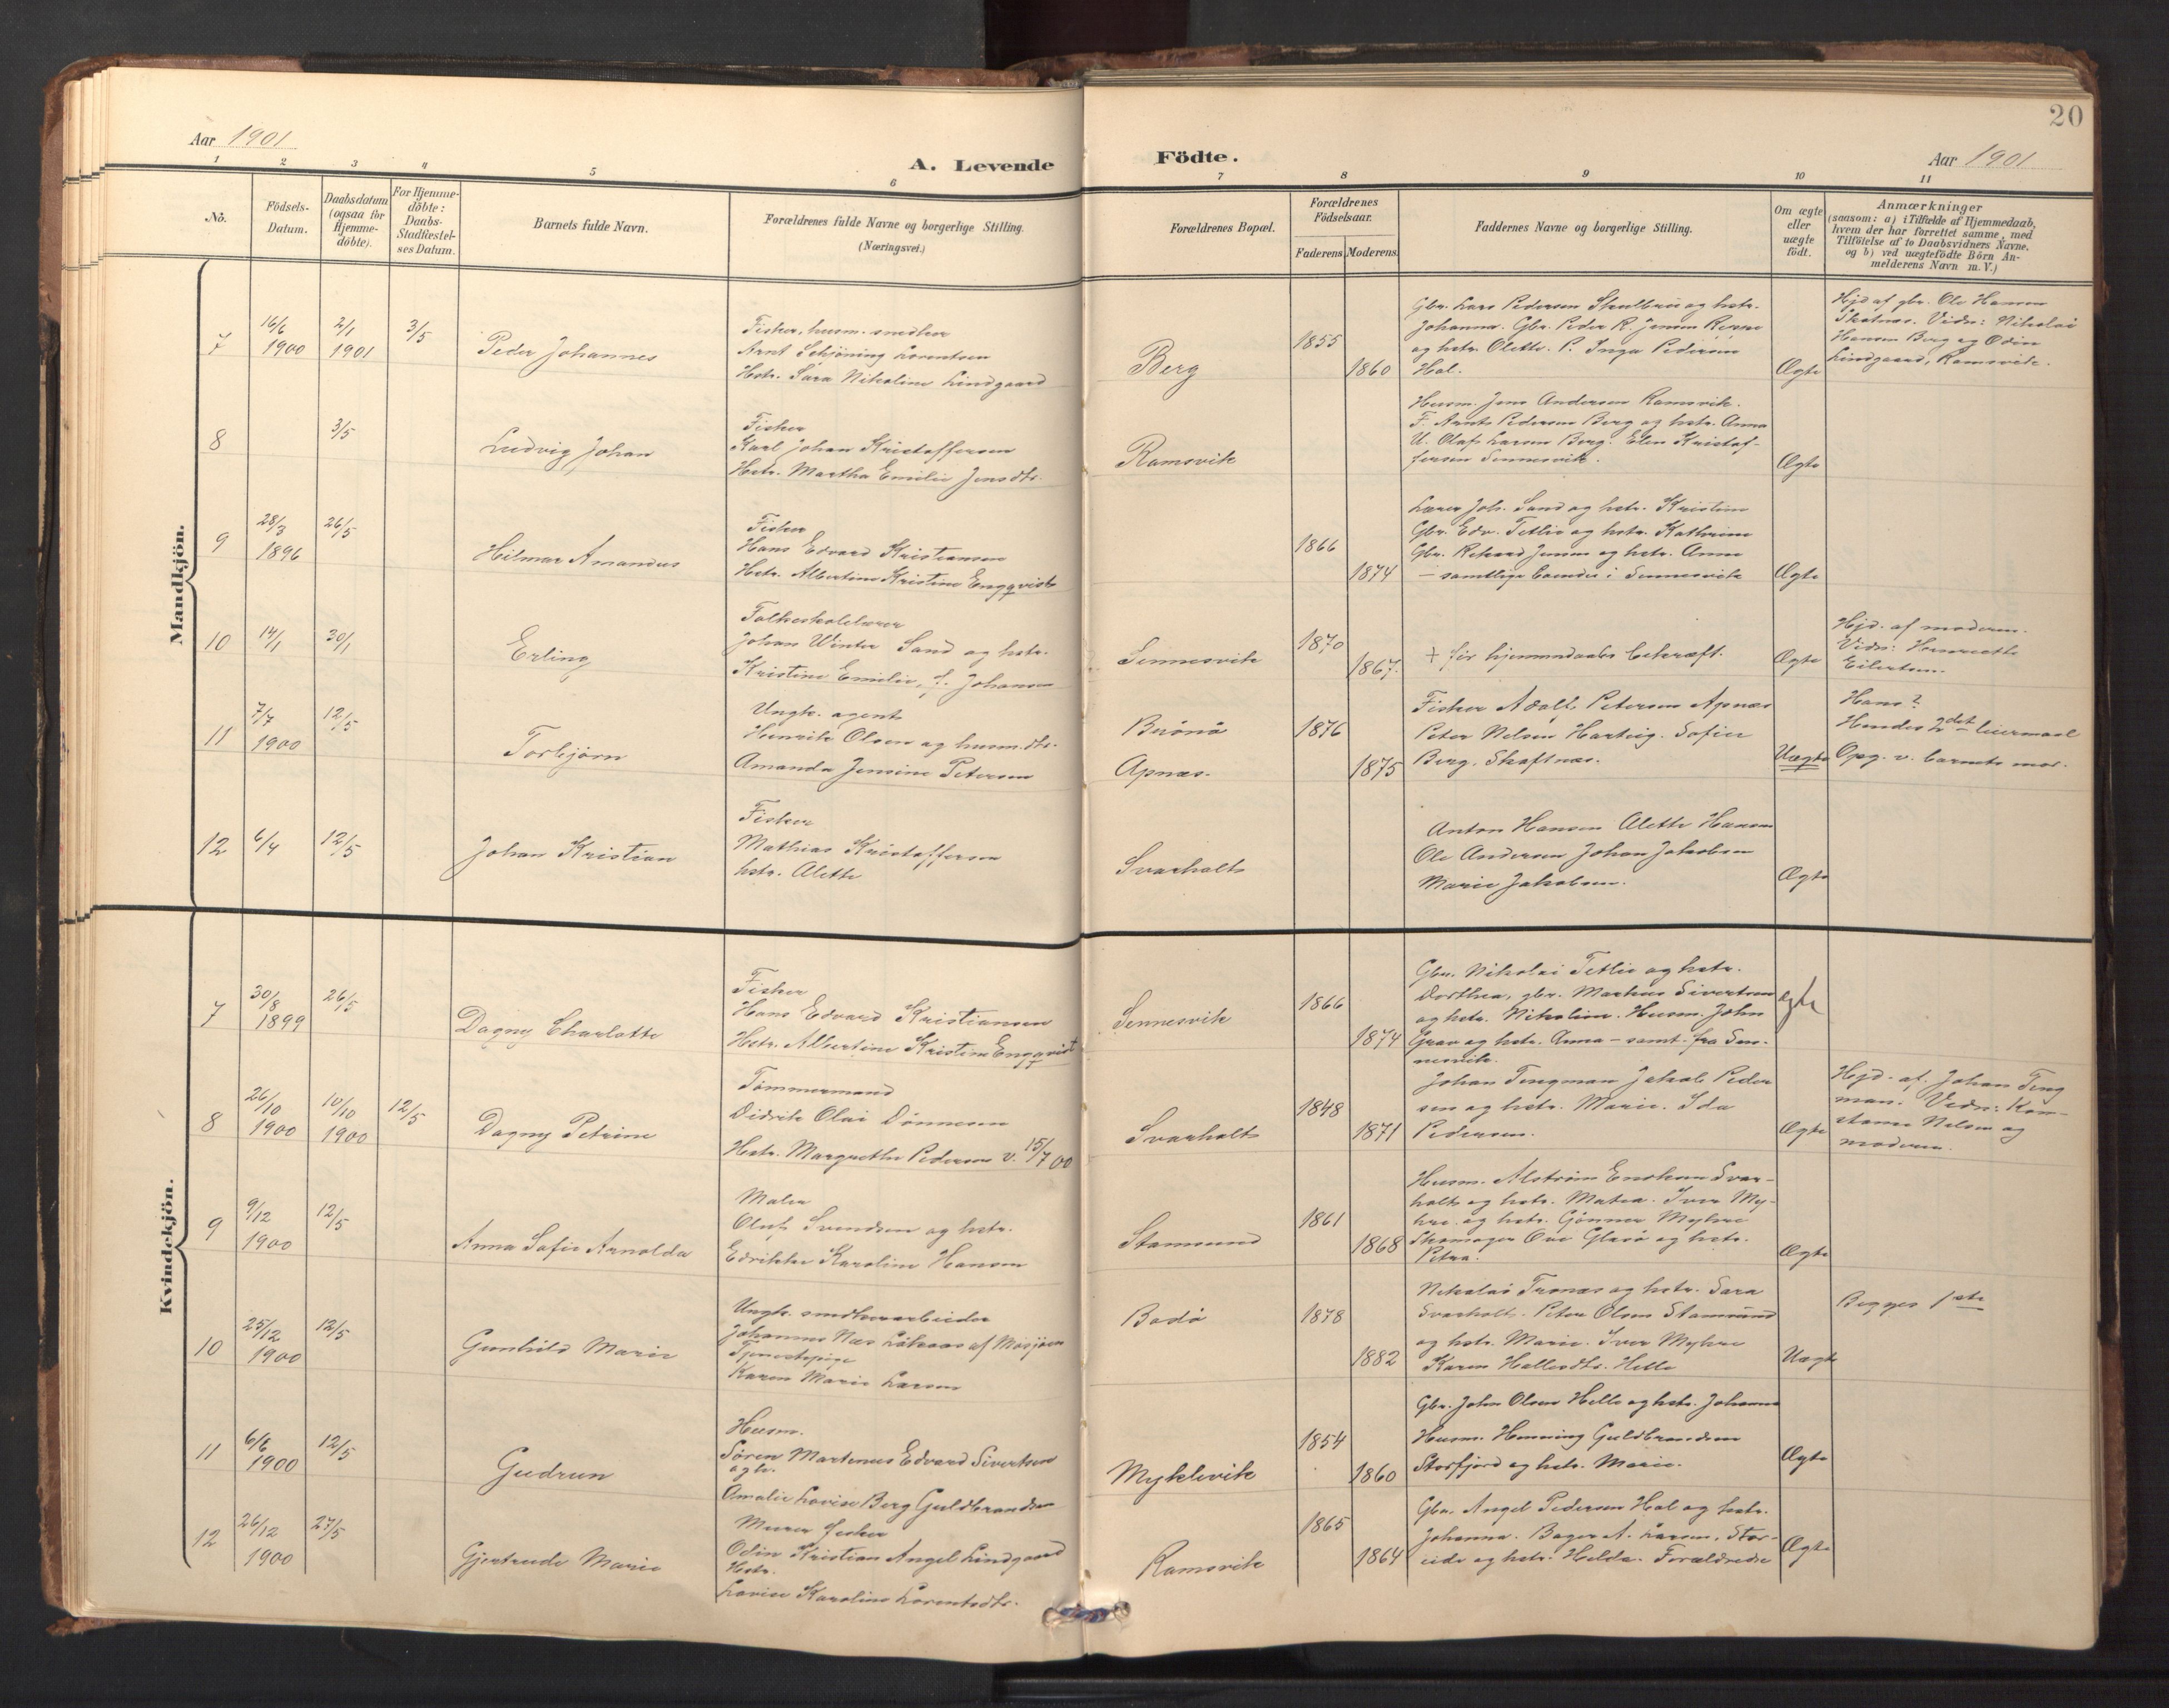 Aar 1901
A. Levende
Födte.
Aar 1901
20
1 2 3 4 5 6 7 8 9 10 11
No.
Födsels-
Datum.
Daabsdatum
(ogsaa for
Hjemme-
döbte).
For Hjemme-
döbte:
Daabs-
Stadfæstel-
ses Datum.
Barnets fulde Navn.
Forældrenes fulde Navne og borgerlige Stilling.
(Næringsvei.)
Forældrenes Bopæl.
Forældrenes
Födselsaar.
Faderens Moderens
Faddernes Navne og borgerlige Stilling.
Om ægte
eller
uægte
födt.
Anmærkninger
(saasom: a) i Tilfælde af Hjemmedaab,
hvem der har forrettet samme, med
Tilföielse af to Daabsvidners Navne,
og b) ved uægtefödte Börn An-
melderens Navn m. V.)
Mandkjön.
7
16/6
1900
2/1
1901
3/5
Peder Johannes
Fisker, husm. snedker
Arnt Schjöning Lorentsen
Hstr. Sara Nikoline Lindgaard
Berg
1855
1860
Gbr. Lars Pedersen Skulbru og hstr.
Johanna. Gbr. Peder R. Jensen
og hstr. Olette. P. Inga Pedersen
Hol.
Ægte
Hjd af gbr. Ole Hansen
Skotnes. Vidn: Nikolai
Hansen Berg og Odin
Lindgaard, Ramsvik.
8
3/5
Ludvig Johan
Fisker
Karl Johan Kristoffersen
Hstr. Martha Emilie Jensdtr.
Ramsvik
Husm. Jens Andersen Ramsvik.
F. Arnt Pedersen Berg og hstr. Anna
U. Olaf Larsen Berg. Elen Kristof-
fersen Sennesvik.
Ægte
9
28/3
1896
26/5
Hilmar Amandus
Fisker
Hans Edvard Kristiansen
Hstr. Albertine Kristine Engqvist
1866
1874
Lærer Joh. Sand og hstr. Kristine
Gbr. Edv. Tetlie og hstr. Kathrine
Gbr. Rikard Jensen og hstr. Anne
– samtlige boende i Sennesvik
Ægte
10
14/1
30/1
Erling
Folkeskolelærer
Johan Winter Sand og hstr.
Kristine Emilie, f. Johansen
Sennesvik
1870
1867.
+ för hjemmedaabs bekræft.
Ægte
Hjd. af moderen.
Vidn: Henriette
Eilertsen.
11
7/7
1900
12/5
Torbjörn
Ungk. agent
Henrik Olsen og husm.dtr.
Amanda Jensine Petersen
Brönö
Apnæs.
1876
1875
Fisker Adolf Petersen Apnæs
Peter Nelsen Hartvig. Sofie
Berg, Skaftnæs.
Uægte
Hans?
Hendes 2det leiermaal
Opg. v. barnets mor.
12
6/4
12/5
Johan Kristian
Fisker
Mathias Kristoffersen
hstr. Alette
Svarholt
Anton Hansen Alette Hansen
Ole Andersen Johan Jakobsen
Marie Jakobsen.
Ægte
Kvindekjön.
7
30/8
1899
26/5
Dagny Charlotte
Fisker
Hans Edvard Kristiansen
Hstr. Albertine Kristine Engqvist
Sennesvik
1866
1874
Gbr. Nikolai Tetlie og hstr.
Dorthea, gbr. Markus Sivertsen
og hstr. Nikoline. Husm. John
Grav og hstr. Anna – samt. fra Sen-
nesvik.
ægte
8
26/10
1900
10/10
1900
12/5
Dagny Petrine
Tömmermand
Didrik Olai Dönnesen
Hstr. Margrethe Pedersen v. 15/7 00
Svarholt
1848
1871
Johan Tengman Jakob Peder
sen og hstr. Marie. Ida
Pedersen.
Ægte
Hjd. af. Johan Teng
man. Vidn: Kon-
stanse Nelsen og
moderen.
9
9/12
1900
12/5
Anna Sofie Arnolda
Maler
Oluf Svendsen og hstr.
Edrikke Karoline Hansen
Stamsund
1861
1868
Husm. Alström Enoksen Svar-
holt og hstr. Matea. Iver My-
hre og hstr. Gjönner Myhre
Skomager Ove Glasö og hstr.
Petra.
Ægte
10
25/12
1900
12/5
Gunhild Marie
Ungk. snedkerarbeider
Johannes Næs af Mosjöen
Tjenestepige
Karen Marie Larsen
Bodö
1878
1882
Nikolai Trones og hstr. Sara
Svarholt. Peter Olsen Stamsund
og hstr. Marie. Iver Myhre
Karen Hallesdtr. Helle
Uægte
Begges 1ste
11
6/6
1900
12/5
Gudrun
Husm.
Sören Martenus Edvard Sivertsen
og h.
Amalie Lovise Berg Guldbrandsen
Myklevik
1854
1860
Gbr. John Olsen Helle og hstr. Johanna
Husm. Henning Guldbrandsen
Storfjord og hstr. Marie.
Ægte
12
26/12
1900
27/5
Gjertrude Marie
Murer fisker
Odin Kristian Angel Lindgaard
Hstr.
Lovise Karoline Lorentsdtr.
Ramsvik
1865
1864
Gbr. Angel Pedersen Hol og hstr.
Johanna. Bager A. Larsen. Stor-
eide og hstr. Helda. Forældrene
Ægte